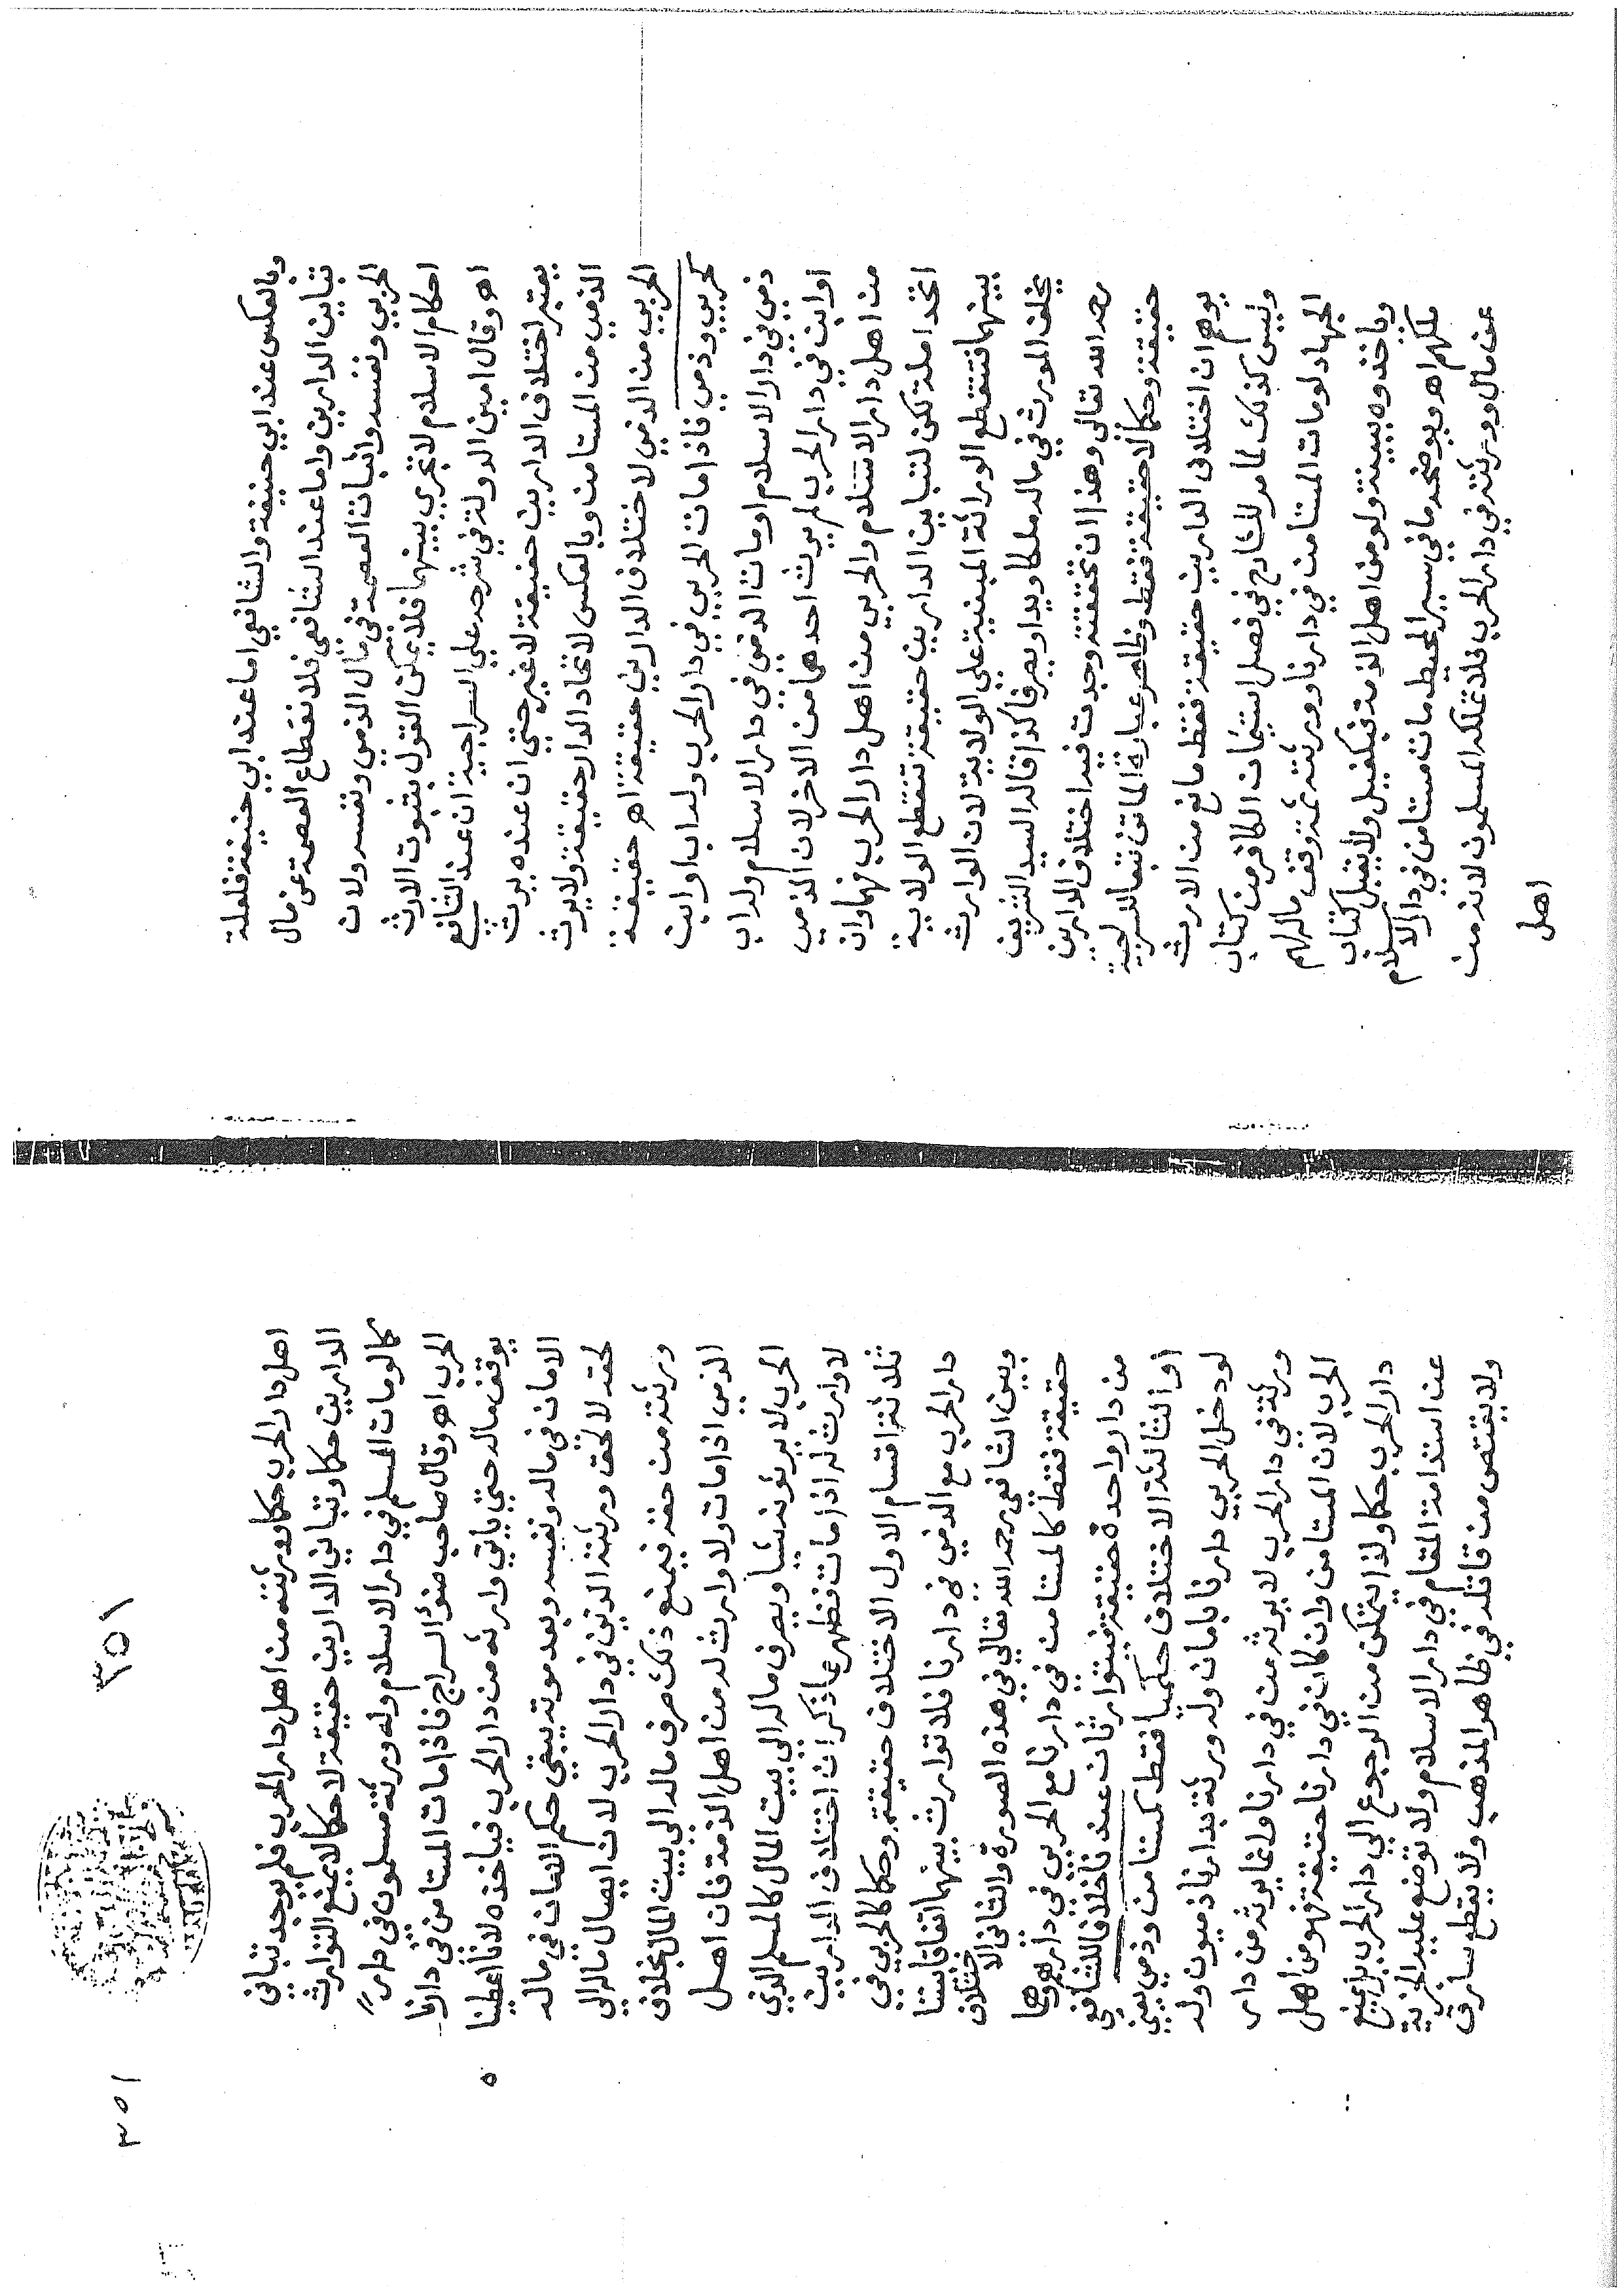 وبالعكس عند ابي حنيفة والشافعي اما عند ابي حنيفة فلعلة
تباين الدارين واما عند الشافعي فلانقطاع العصمة عن مال
الحربي ونفسه واثبات العصمة في مال الذمي ونفسه ولان
احكام الاسلام لا تجري بينهما فلا يمكن القول بثبوت الارث
اهـ وقال امين الدولة في شرحه علي السراجية ان عند الشافع
يعتبر اختلاف الدارين حقيقة لا غير حتي ان عنده يرث
الذمي من المستامن وبالعكس لاتحاد الدار حقيقة ولا يرث
الحربي من الذمي لاختلاف الدارين حقيقة اهـ حقيقة
كحربي وذمي فاذا مات الحربي في دار الحرب وله اب او ابن
ذمي في دار الاسلام او مات الذمي في دار الاسلام وله اب
او ابن في دار الحرب لم يرث احدهما من الاخر لان الذمي
من اهل دار الاسلام والحربي من اهل دار الحرب فهما وان
اتحدا ملة لكن لتباين الدارين حقيقة تنقطع الولاية
بينهما فتنقطع الوراثة المبنية علي الولاية لان الوارث
يخلف المورث في ماله ملكا ويدا وتصرفا كذا قاله السيد الشريف
رحمه الله تعالى وهذا ان تحققته وجدت فيه اختلاف الدارين
حقيقة وحكما لا حقيقة فقط وظاهر عبارة الماتن تبعا للسراجية
يوهم ان اختلاف الدارين حقيقة فقط مانع من الارث
وليس كذلك لما مر للشارح في فصل استيمان الكافر من كتاب
الجهاد لو مات المستامن في دارنا وورثته ثمة وقف ماله لهم
وياخذوه ببينة ولو من اهل الذمة فبكفيل ولا يقبل كتاب
ملكهم اهـ ويوضحه ما في سير المحيط مات مستامن في دار الاسلام
عن مال وورثته في دار الحرب فلا تملكه المسلمون لانه من
اهل
٣٥١
٣٥١
اهل دار الحرب حكما وورثته من اهل دار الحرب فلم يوجد تباين
الدارين حكما وتباين الدارين حقيقة لا حكما لا يمنع التوارث
كما لو مات المسلم في دار الاسلام وله ورثة مسلمون في دار
الحرب اهـ وقال صاحب ضوء السراج فاذا مات المستامن في دارنا
يوقف ماله حتي ياتي وارثه من دار الحرب فياخذه لانا اعطينا
الامان في ماله ونفسه وبعد موته يبقي حكم الامان في ماله
لحقه لا لحق ورثته الذين في دار الحرب لان ايصال ماله الي
ورثته من حقه فيمنع ذلك صرف ماله الي بيت المال بخلاف
الذمي اذا مات ولا وارث له من اهل الذمة فان اهل
الحرب لا يرثونه شيا ويصرف ماله الي بيت المال كالمسلم الذي
لا وارث له اذا مات فظهر مما ذكر ان اختلاف الدارين
ثلاثة اقسام الاول الاختلاف حقيقة وحكما كالحربي في
دار الحرب مع الذمي في دارنا فلا توارث بينهما اتفاقا بيننا
وبين الشافعي رحمه الله تعالي في هذه الصورة والثاني الاختلاف
حقيقة فقط كالمستامن في دارنا مع الحربي في دارهم وهما
من دار واحدة حقيقة فيتوارثان عندنا خلافا للشافعي
أو الثالث الاختلاف حكميا فقط كمستامن وذمي يعني
لو دخل الحربي دارنا بامان وله ورثة بدارنا ذميون وله
ورثة في دار الحرب لا يورثه من في دارنا وانما يورثه من دار
الحرب لان المستامن وان كان في دارنا حقيقة فهو من اهل
دار الحرب حكما ولذا يتمكن من الرجوع الي دار الحرب ويمنع
عن استدامة المقام في دار الاسلام ولا توضع عليه الجزية
ولا يقتص من قاتله في ظاهر المذهب ولا يقطع سارق